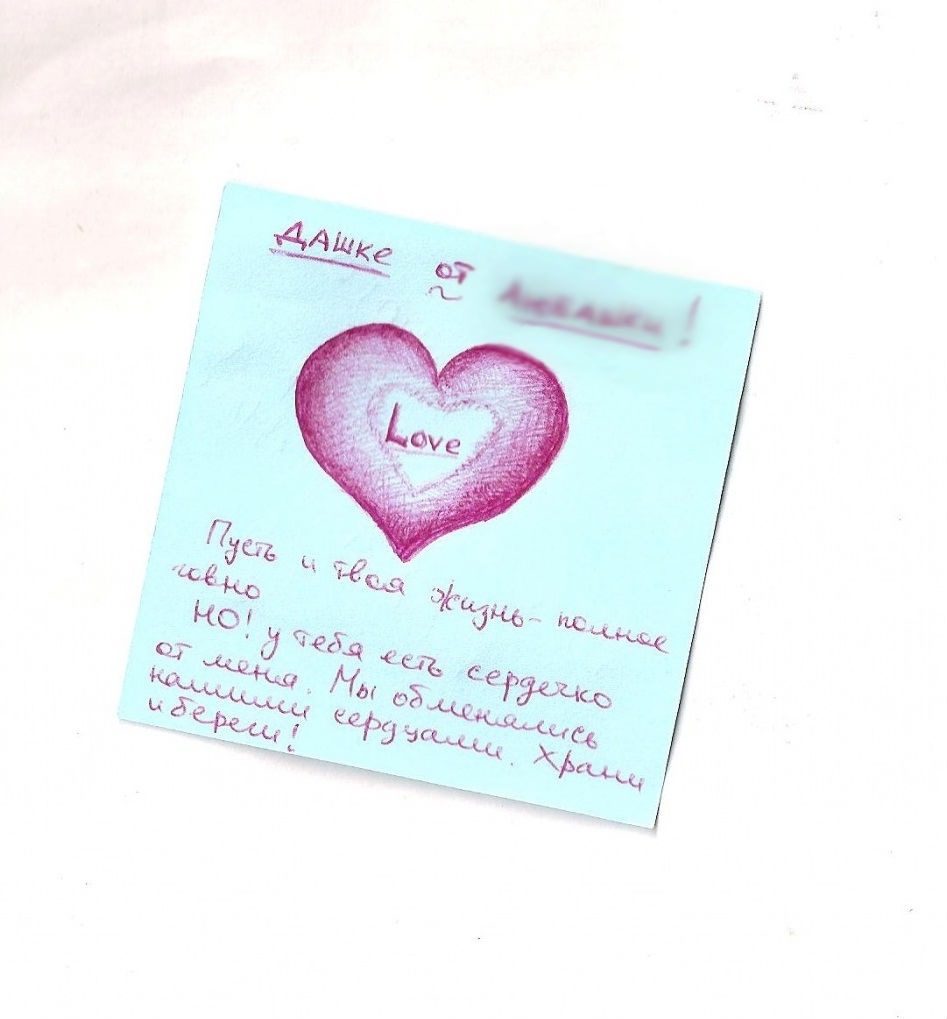 ДАШКЕ от !
Love
Пусть и твоя жизнь - полное
говно
НО! у тебя есть сердечко
от меня. Мы обменялись
нашими сердцами. Храни
и береги!